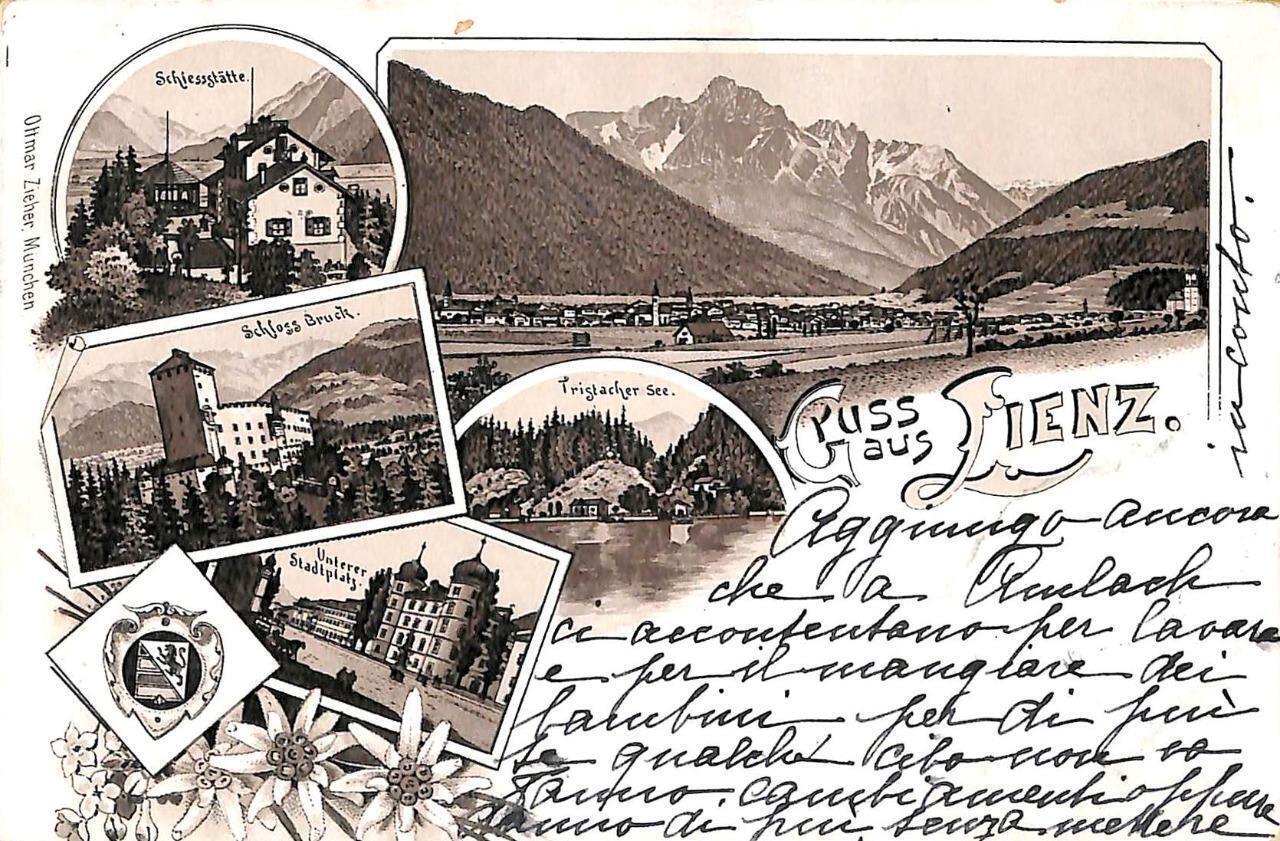 Schiessstätte.
Ottmar Zieher, München
Schloss Bruck.
Tristacher See.
Unterer
Stadtplatz.
Gruss
aus Lienz.
Aggiungo ancora
che a Amlach
ci accontentano per lavare
e per il mangiare dei
bambini per di più
se qualche cibo non va
fanno cambiamenti oppure
fanno di più, senza mettere
in conto.